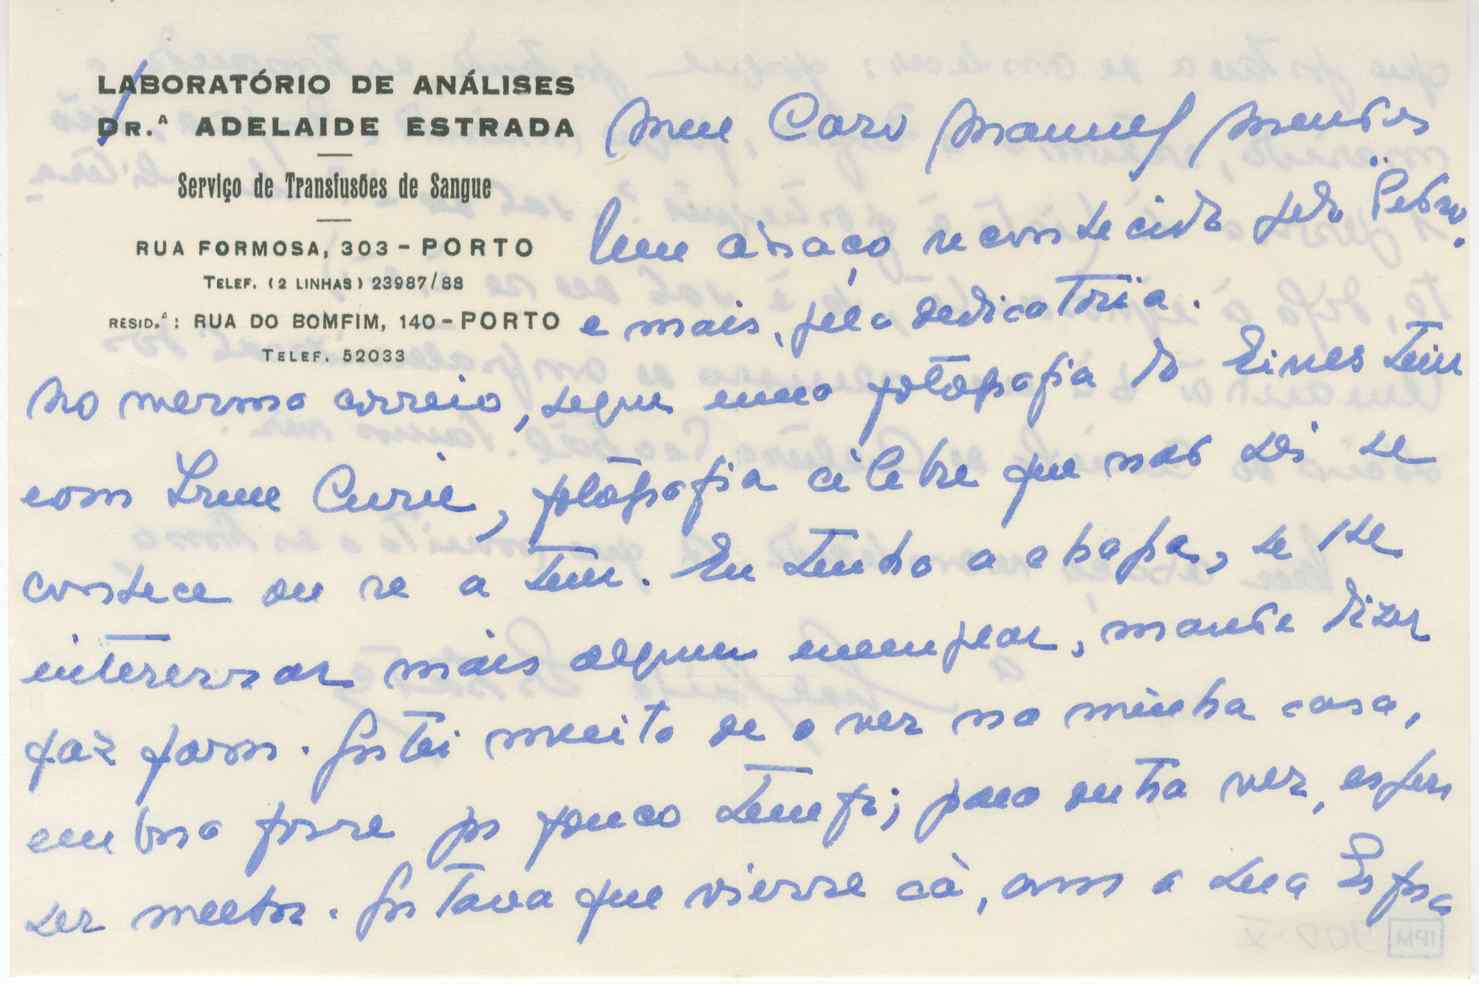 LABORATÓRIO DE ANÁLISES
DR.ª ADELAIDE ESTRADA
Serviço de Transfusões de Sangue
RUA FORMOSA, 303 - PORTO
TELEF. (2 LINHAS) 23987/88
RESID.ª: RUA DO BOMFIM, 140 - PORTO
TELEF. 52033
Meu Caro Manuel Mendes
Um abraço reconhecido pelo
e mais, pela dedicatória.
No mesmo correio, segue uma fotografia do Einestein
com Irene Curie, fotografia célebre que não sei se
conhece ou se a tem. Eu tenho a chapa, se lhe
interessar mais algum exemplar, mande dizer
faz favor. Gostei muito de o ver na minha casa,
embora fosse por pouco tempo; para outra vez, espero
ser melhor. Gostava que viesse cá, com a sua Esposa
IPM